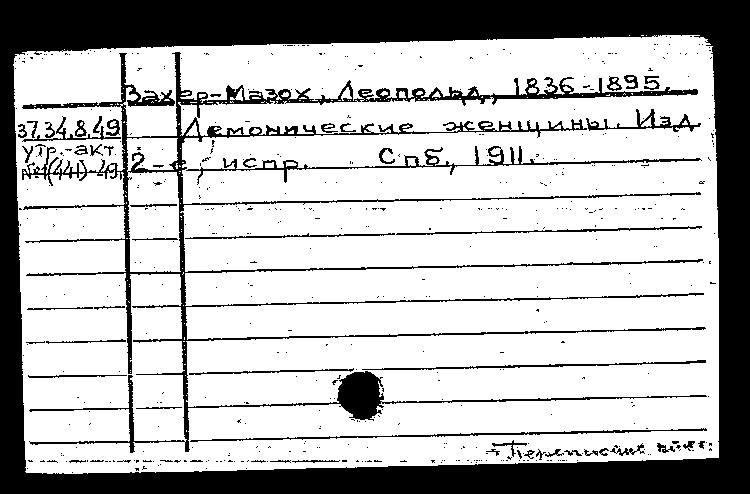 Захер-Мазох, Леопольд, 1836-1895.
37.34.8.49 Демонические женщины. Изд.
утр.-акт 2-е, испр. Спб., 1911.
№1(441)-49.